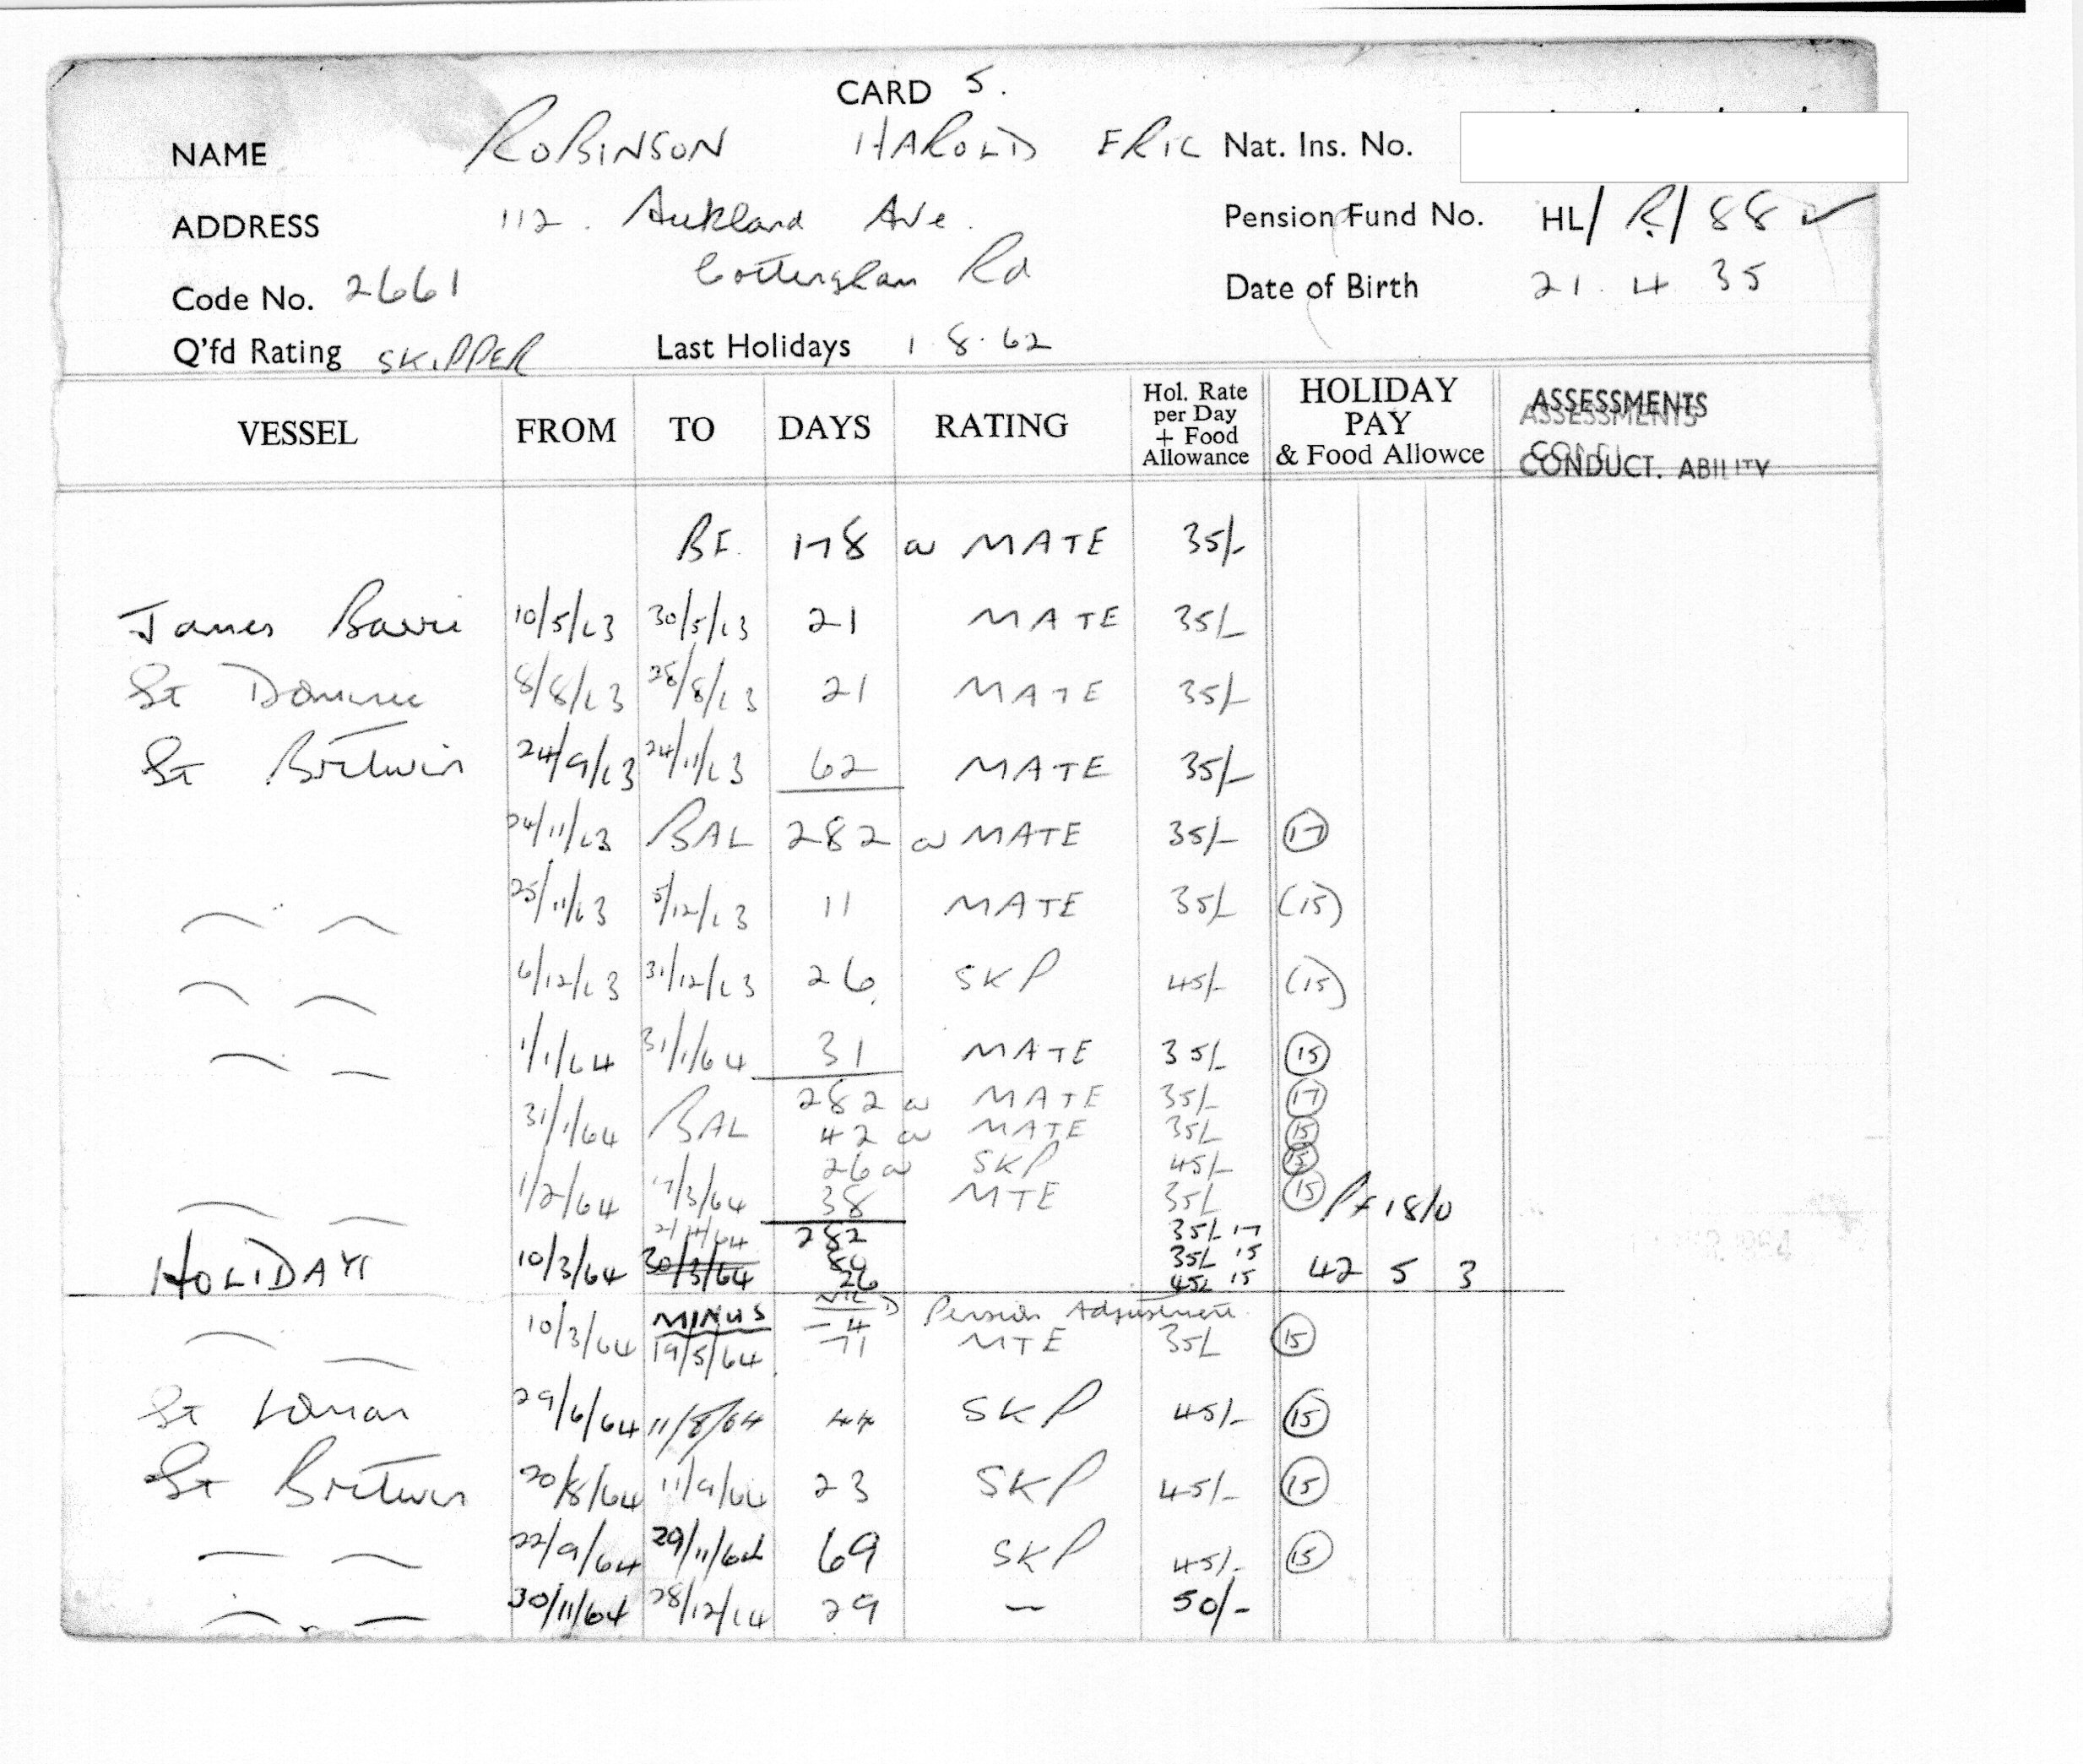 CARD 5.
NAME ROBINSON HAROLD ERIC Nat. Ins. No.
ADDRESS 112. Aukland Ave. Pension Fund No. HL/ R/ 88 ✓
Code No. 2661 Cottingham Rd Date of Birth 21. 4 35
Q'fd Rating SKIPPER Last Holidays 1 8. 62
VESSEL FROM TO DAYS RATING Hol. Rate per Day + Food Allowance HOLIDAY PAY & Food Allowce ASSESSMENTS CONDUCT. ABILITY
BF. 178 @ MATE 35/-
James Barrie 10/5/63 30/5/63 21 MATE 35/-
St Dominic 8/8/63 28/8/63 21 MATE 35/-
St Britwin 24/9/63 24/11/63 62 MATE 35/-
24/11/63 BAL 282 @ MATE 35/- (17)
25/11/63 5/12/63 11 MATE 35/- (15)
6/12/63 31/12/63 26 SKP 45/- (15)
1/1/64 31/1/64 31 MATE 35/- (15)
282 @ MATE 35/- (17)
31/1/64 BAL 42 @ MATE 35/- (15)
26 @ SKP 45/- (15)
1/2/64 9/3/64 38 MTE 35/- (15)
21/4/64 282 35/- 17
HOLIDAYS 10/3/64 30/3/64 80 35/- 15 42 5 3
26 45/- 15
MINUS - 4 Pension Adjustment
10/3/64 19/5/64 71 MTE 35/- (15)
St Loman 29/6/64 11/8/64 44 SKP 45/- (15)
St Britwin 20/8/64 11/9/64 23 SKP 45/- (15)
22/9/64 29/11/64 69 SKP 45/- (15)
30/11/64 28/12/64 29 — 50/-